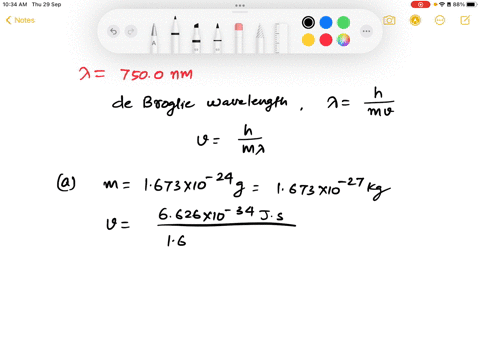 10:34 AM Thu 29 Sep
88%
Notes
λ = 750.0 nm
de Broglie wavelength, λ = h/mv
v = h/mλ
(a) m = 1.673×10⁻²⁴ g = 1.673×10⁻²⁷ kg
v = 6.626×10⁻³⁴ J.s
1.6